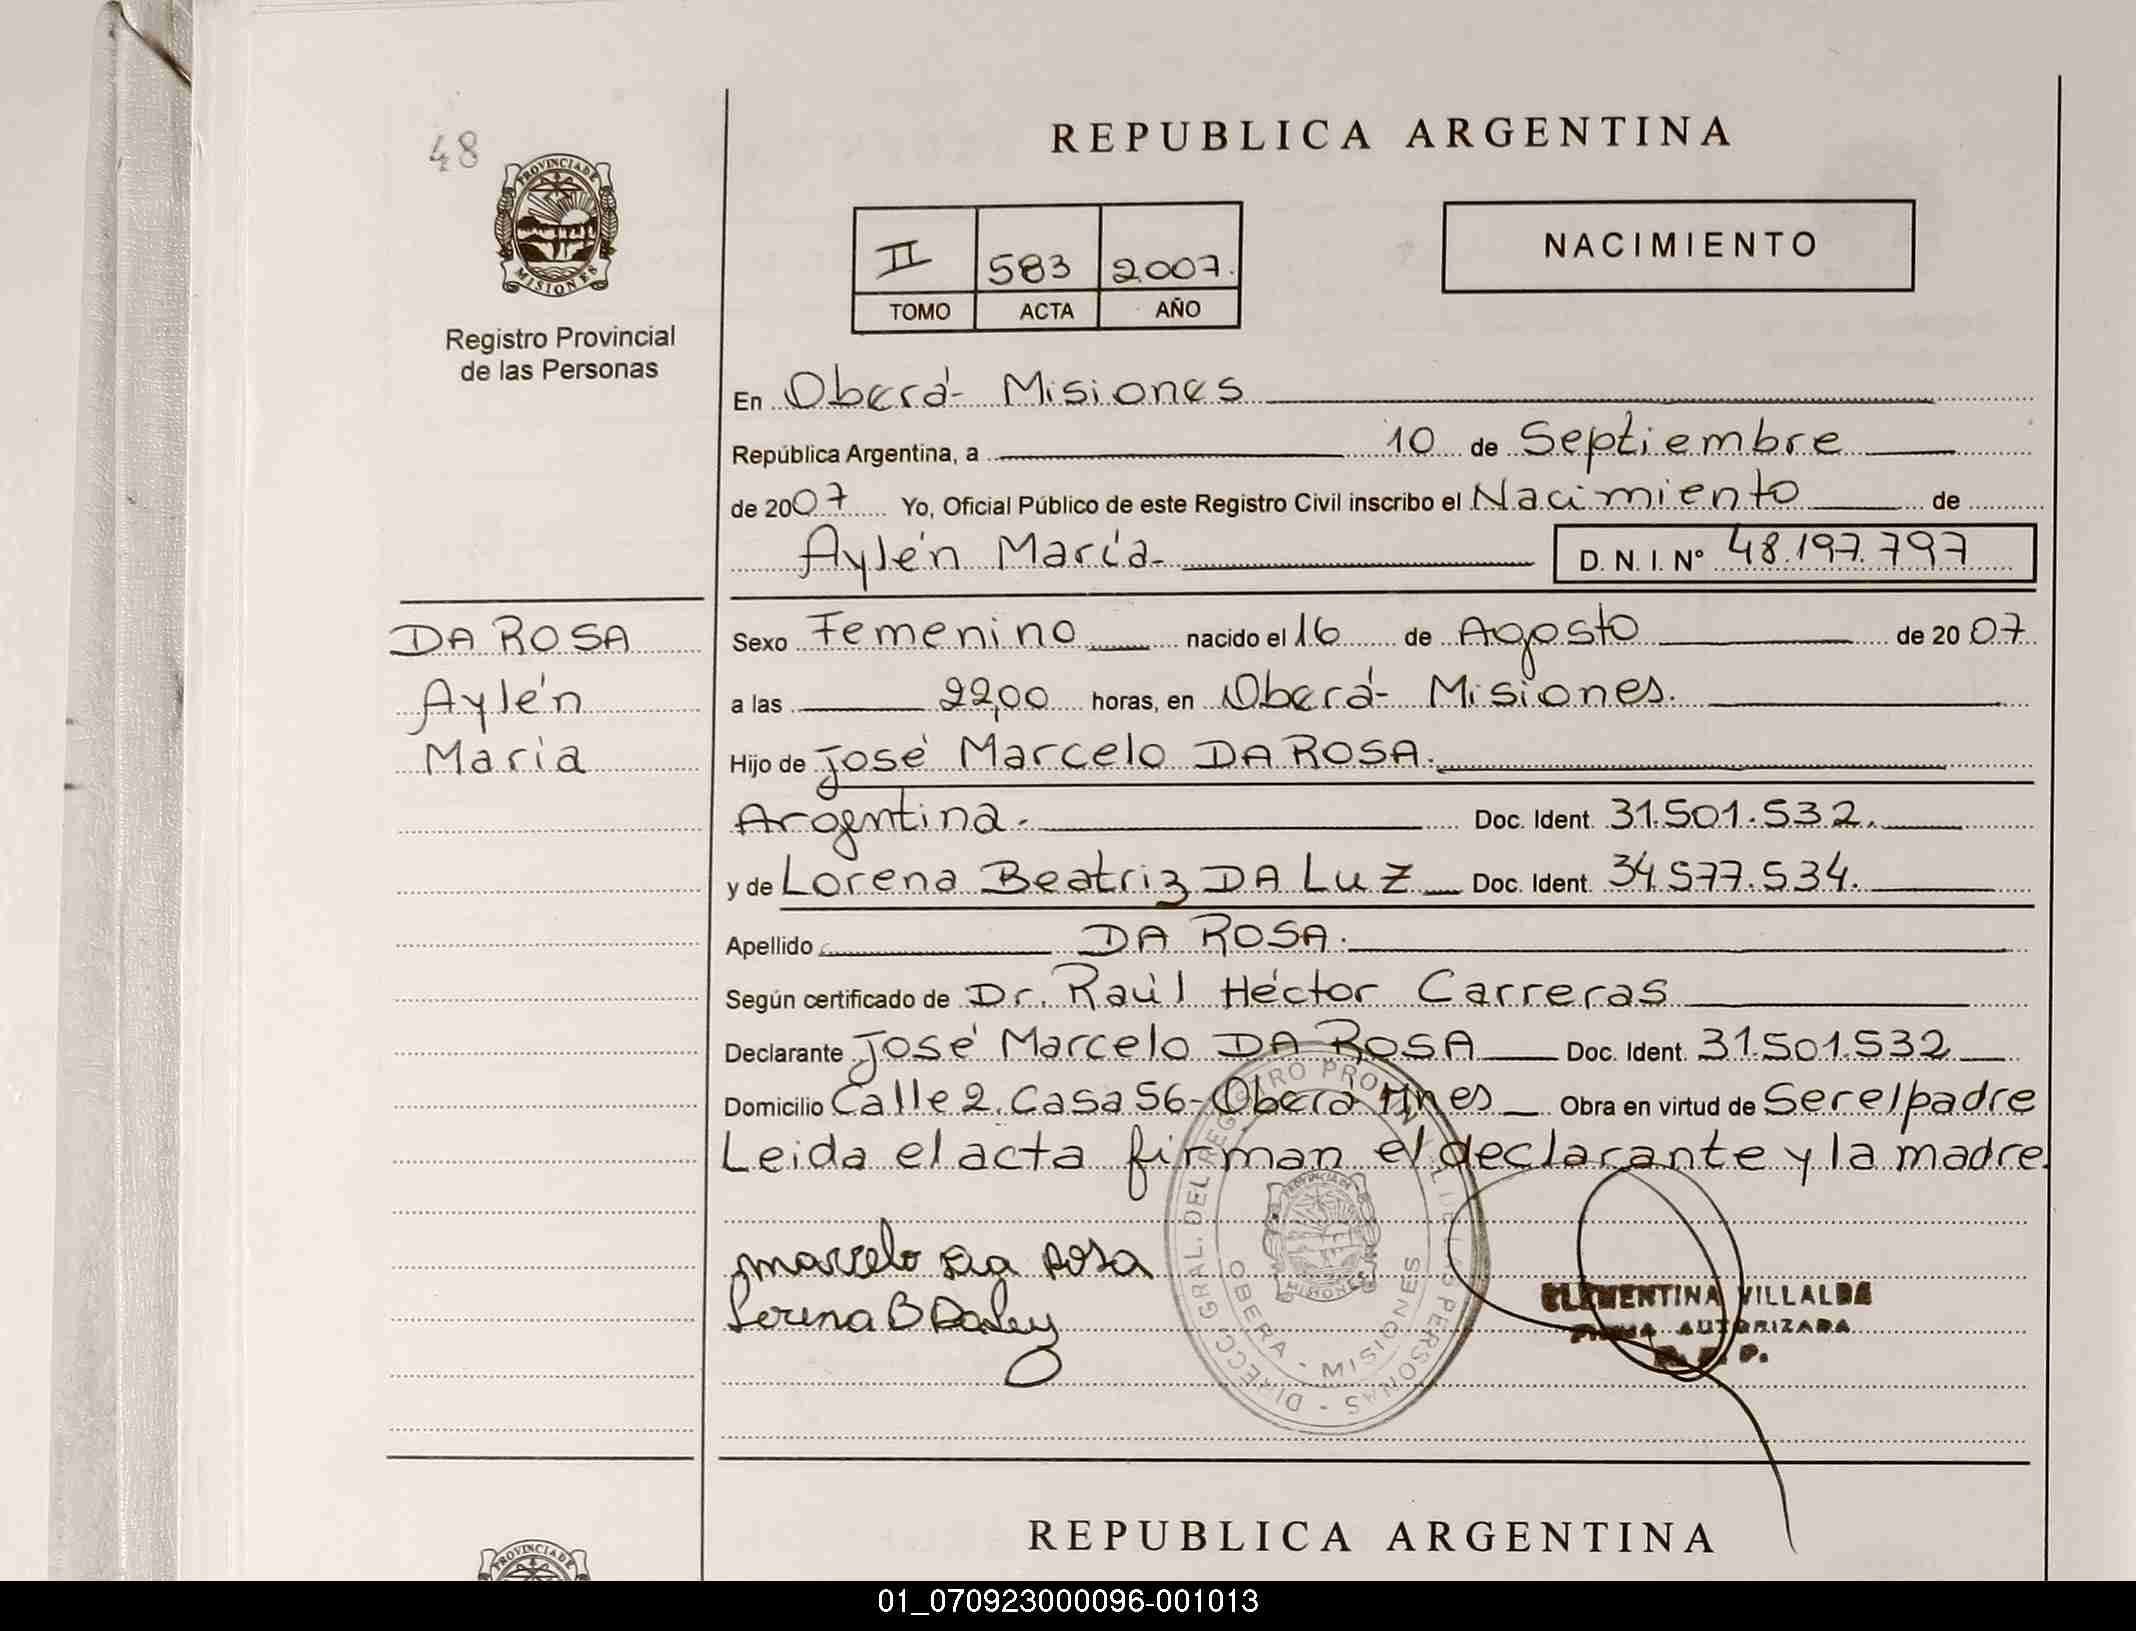 48
PROVINCIA DE
MISIONES
Registro Provincial
de las Personas
REPUBLICA ARGENTINA
II 583 2007.
TOMO ACTA AÑO
NACIMIENTO
En Oberá- Misiones
República Argentina, a 10 de Septiembre
de 2007 Yo, Oficial Público de este Registro Civil inscribo el Nacimiento de
Aylén María- D. N. I. Nº 48.197.797
DA ROSA
Aylén
María
Sexo Femenino nacido el 16 de Agosto de 20 07
a las 22,00 horas, en Oberá- Misiones.
Hijo de José Marcelo DA ROSA.
Argentina. Doc. Ident. 31.501.532.
y de Lorena Beatriz DA LUZ Doc. Ident. 34.577.534.
Apellido DA ROSA.
Según certificado de Dr. Raúl Héctor Carreras
Declarante José Marcelo DA ROSA Doc. Ident. 31.501.532
Domicilio Calle 2. Casa 56- Oberá Mnes Obra en virtud de Ser el padre
Leida el acta firman el declarante y la madre.
marcelo da Rosa
Lorena B Daluz
DIRECC. GRAL. DEL REGISTRO PROV. DE LAS PERSONAS
PROVINCIA DE
MISIONES
OBERA - MISIONES
CLEMENTINA VILLALBA
FIRMA AUTORIZADA
R. P. P.
REPUBLICA ARGENTINA
PROVINCIA DE
01_070923000096-001013